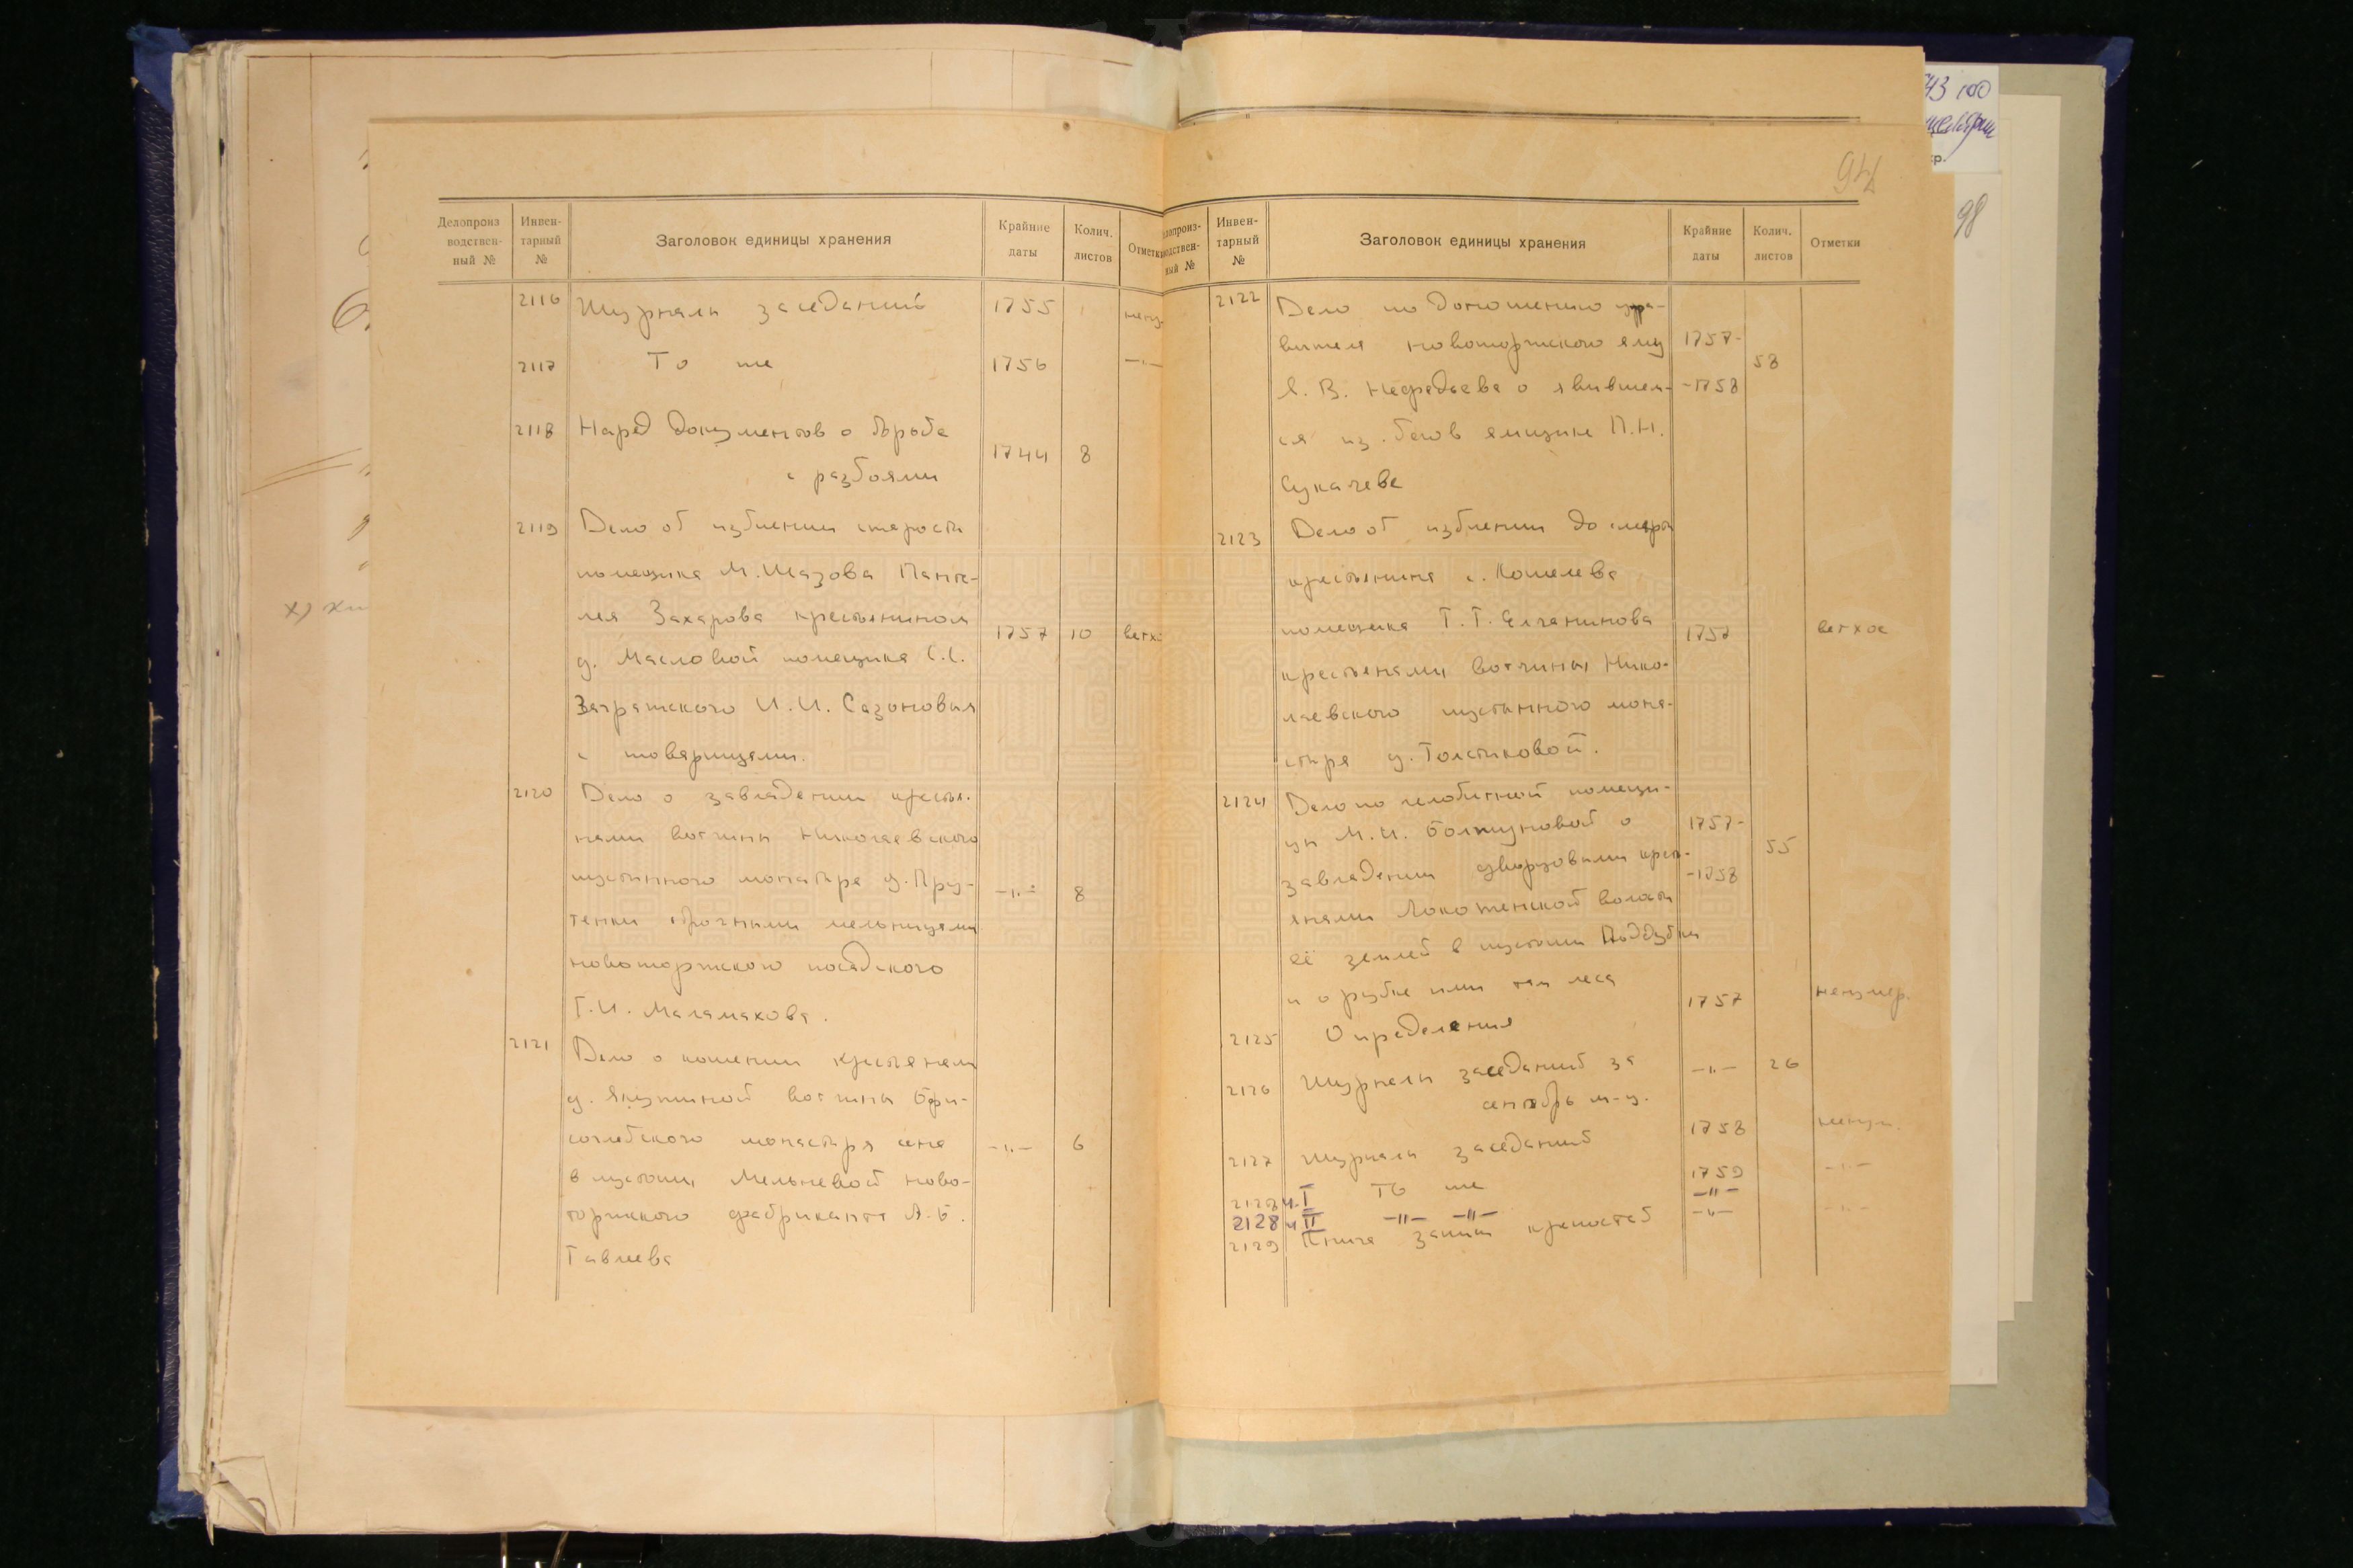 94
98
Делопроиз
водствен-
ный №
Инвен-
тарный
№
Заголовок единицы хранения
Крайние
даты
Колич.
листов
Отметки
2116 Журналы заседаний 1755
2117 То же 1756 —"—
2118 Наряд документов о борьбе
с разбоями 1744 8
2119 Дело об избиении старосты
помещика М. Шазова Панте-
лея Захарова крестьянином
д. Масловой помещика С.С.
Загряжского И.И. Сазоновым 1757 10 ветхо
с товарищами.
2120 Дело о завладении крестья-
нами вотчины Николаевского
пустынного монастыря д. Пру-
тенки оброчными мельницами —"— 8
новоторжского посадского
Г.И. Маламахова.
2121 Дело о кошении крестьянами
д. Якушиной вотчины Бори-
соглебского монастыря сена —"— 6
в пустоши Мельневой ново-
торжского фабриканта А.Б.
Тавлеева
Инвен-
тарный
№
Заголовок единицы хранения
Крайние
даты
Колич.
листов
Отметки
2122 Дело по доношению упра-
вителя новоторжского яму 1757-
В. Нефедьева о явившем- -1758 58
ся из бегов ямщике П.Н.
Сукачеве
2123 Дело об избиении до смерти
крестьянина с. Кошелева
помещика Г.Г. Елчанинова 1757 ветхое
крестьянами вотчины Нико-
лаевского пустынного мона-
стыря д. Толстиковой.
2124 Дело по челобитной помещи-
цы М.И. Болтуновой о 1757-
завладении дворцовыми крест- -1758 55
янами Локотенской волости
её землей в пустоши Поддубки
и о рубке ими там леса
2125 Определения 1757 ненумер.
2126 Журналы заседаний за —"— 26
сентябрь м-ц.
2127 Журналы заседаний 1758 ненум.
2128 ч. I То же 1759 —"—
2128 ч II —"— —"— —"—
2129 Книга записи крепостей —"— —"—